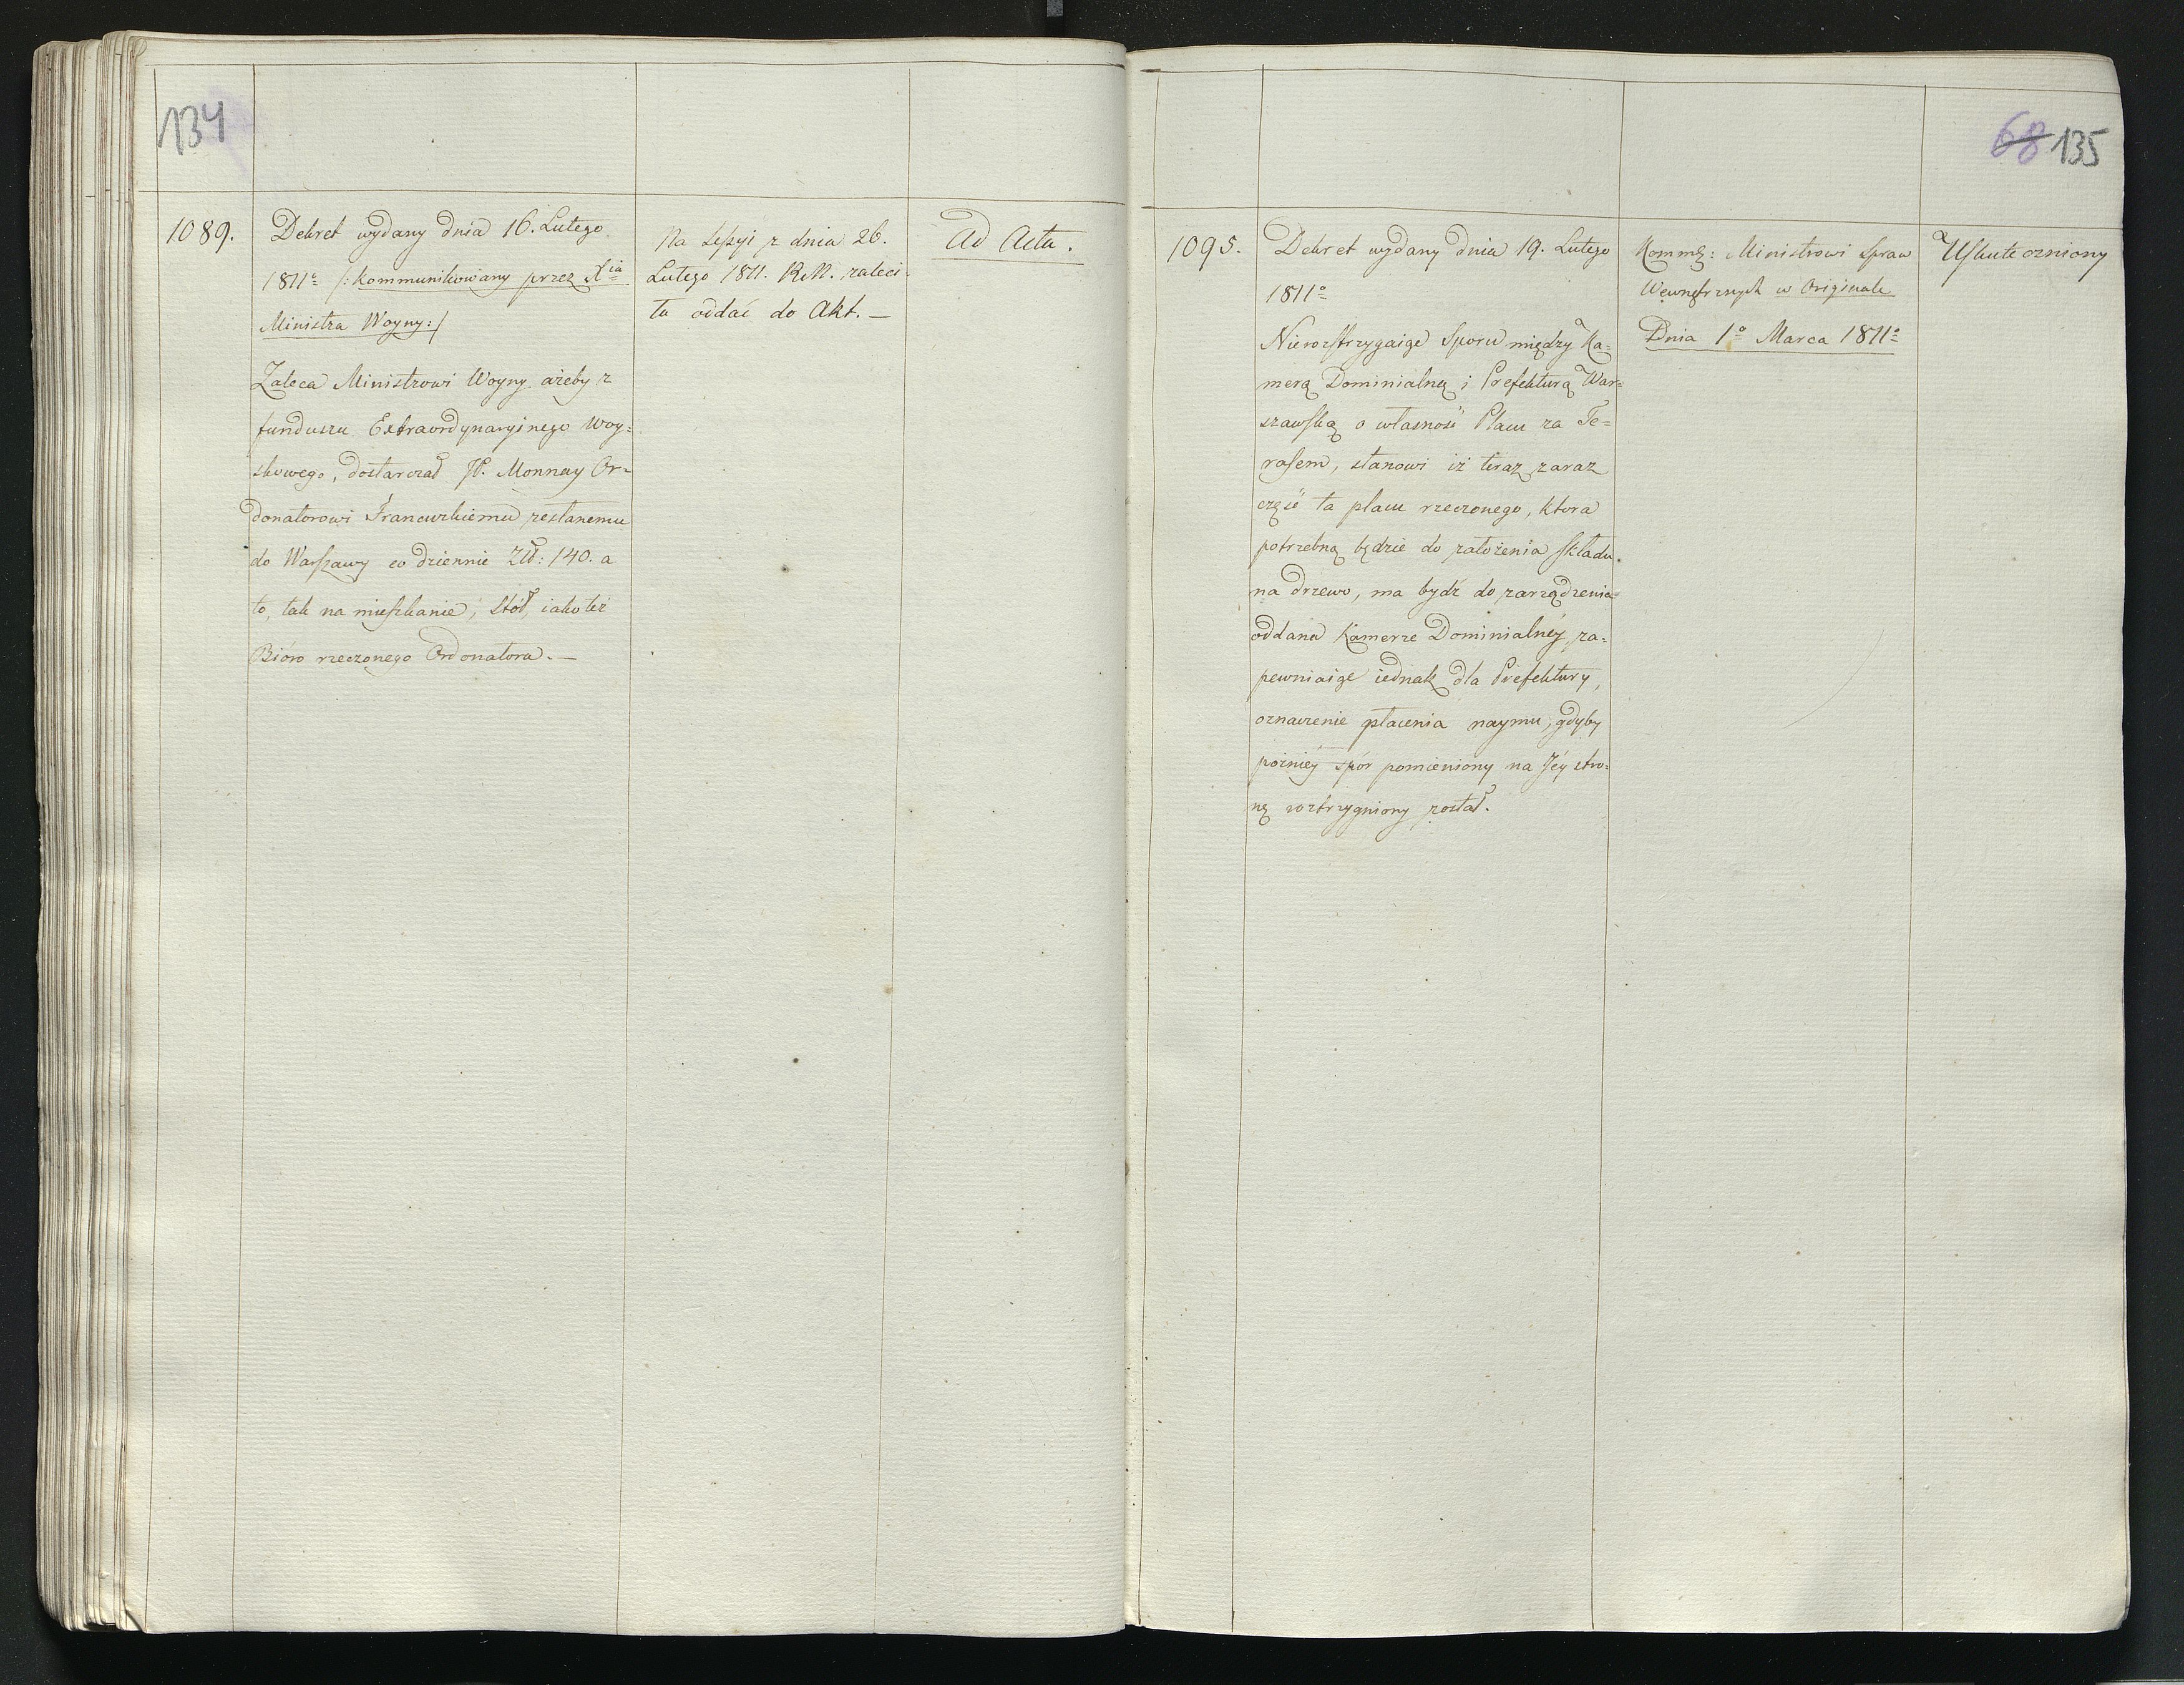 134
1089.
Dekret wydany dnia 16. Lutego
1811o /: kommunikowany przez Xia
Ministra Woyny :/
Zaleca Ministrowi Woyny ażeby z
funduszu Extraordynaryinego Woy=
skowego, dostarczał JP. Monnay Or=
donatorowi Francuzkiemu zesłanemu
do Warszawy co dziennie Złł: 140. a
to, tak na mieszkanie, Stół, iako też
Bióro rzeczonego Ordonatora. —
Na Sessyi z dnia 26.
Lutego 1811. R.M. zaleci-
ła oddać do Akt. —
Ad Acta.
68 135
1095.
Dekret wydany dnia 19. Lutego
1811o
Nierozstrzygaiąc Sporu między Ka=
merą Dominialną i Prefekturą War=
szawską o własność Placu za Te=
rasem, stanowi iż teraz zaraz
część ta placu rzeczonego, ktora
potrzebną będzie do założenia składu
na drzewo, ma bydź do zarządzenia
oddana Kamerze Dominialnéy, za=
pewniaiąc iednak dla Prefektury,
oznaczenie płacenia naymu, gdyby
poźniéy spór pomieniony na Jéy stro=
nę roztrzygniony został.
Ministrowi Spraw
Wewnętrznych w Originale
Dnia 1o Marca 1811o
Uskuteczniony